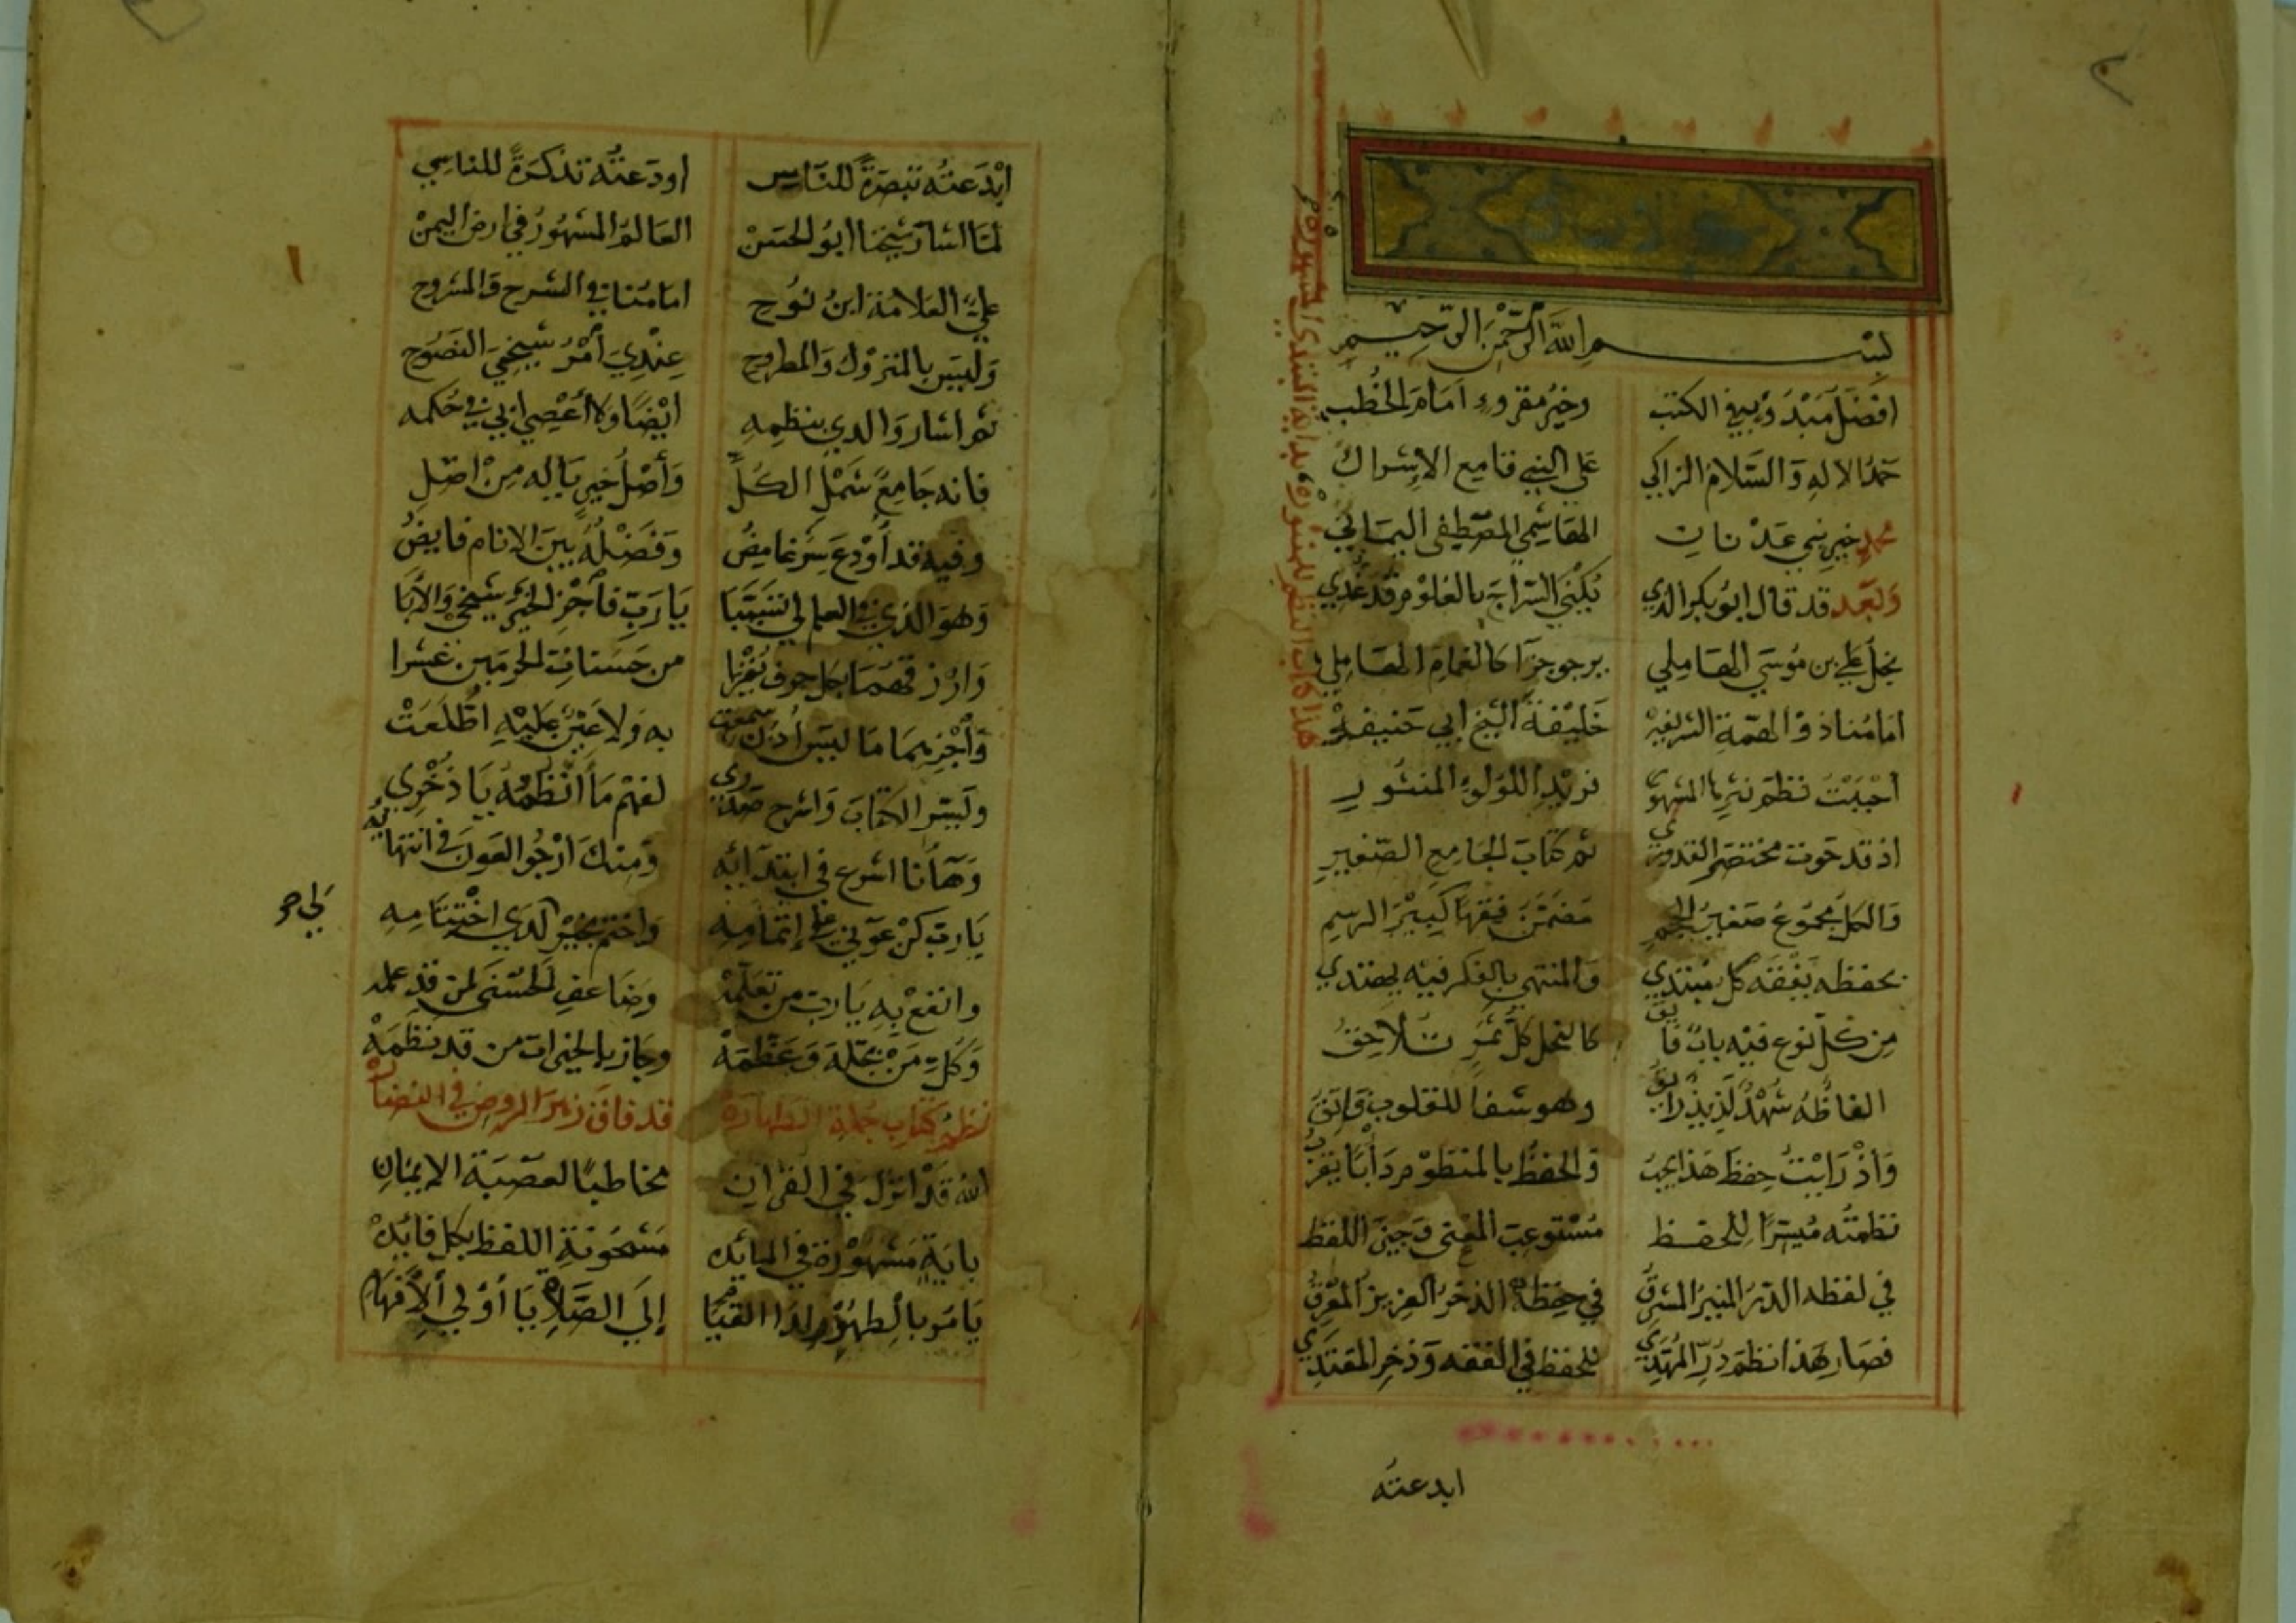 بسم الله الرحمن الرحيم
افضل مبدؤ به في الكتب وخير مقروء امام الخطب
حمد الاله والسلام الزاكي على النبي قامع الاشراك
محمد خير بني عدنان الهاشمي المصطفى اليماني
وبعد قد قال ابو بكر الذي يكنى السراج بالعلوم قد غذي
نجل علي بن موسى الهاملي يرجو جزآ كالغمام الهامل
امامنا ذو الهمة الشريفه خليفة الشيخ ابي حنيفه
احببت نظم نثرها المشهور نريد اللولؤ المنثور
اذ قد حوت مختصر القدوري ثم كتاب الجامع الصغير
والكل مجموع صغير الحجم مضمن فقها كبير الرسم
بحفظه يفقه كل مبتدي والمنتهي بالفكر فيه يهتدي
من كل نوع فيه باب فايق كالنخل كل ثمر تلاحق
الفاظه شهد لذيذ رايق وهو شفا للقلوب فايق
واذ رايت حفظ هذا يجب والحفظ بالمنظوم دأبا يقرب
نظمته ميسرا للحفظ مستوعب المعنى وجيز اللفظ
في لفظه الدر المنير المشرق في حفظه الذخر العزيز المعرق
فصار هذا نظم در المهتدي للحفظ في الفقه وذخر المقتدي
ابدعته
ابدعته تبصرة للناس اودعته تذكرة للناسي
لما اشار شيخنا ابو الحسن العالم المشهور في ارض اليمن
علي العلامة ابن نوح امامنا في الشرح والمشروح
وليس بالمتروك والمطروح عندي أمر شيخي النصوح
ثم اشار والدي بنظمه ايضا ولا أعصي ابي في حكمه
فانه جامع شمل الكل وأصل خير ياله من اصل
وفيه قد أودع سر غامض وفضله بين الانام فايض
وهو الذي في العلم لي تسببا يا رب فأجز الخير شيخي والأبا
وارزقهما بكل حرف يقرا من حسنات الحرمين عشرا
وأجزهما ما ليس أذن سمعت به ولا عين عليه اطلعت
ويسر الكتاب واشرح صدري لفهم ما أنظمه يا ذخري
وهآنا اشرع في ابتدائه ومنك ارجو العون في انتهائه
يارب كن عوني على إتمامه واختم بخير لدى اختتامه
وانفع به يا رب من تعلمه وضاعف الحسنى لمن قد علمه
وكل من بجله وعظمه وجاز بالخيرات من قد نظمه
نظم كتاب جملة الطهارة قد فاق زهر الروض في النضارة
الله قد انزل في القران مخاطبا لعصبة الايمان
باية مشهورة في المائده مشحونة اللفظ بكل فائده
يامر بالطهور لذا القيام إلى الصلاة يا أولي الافهام